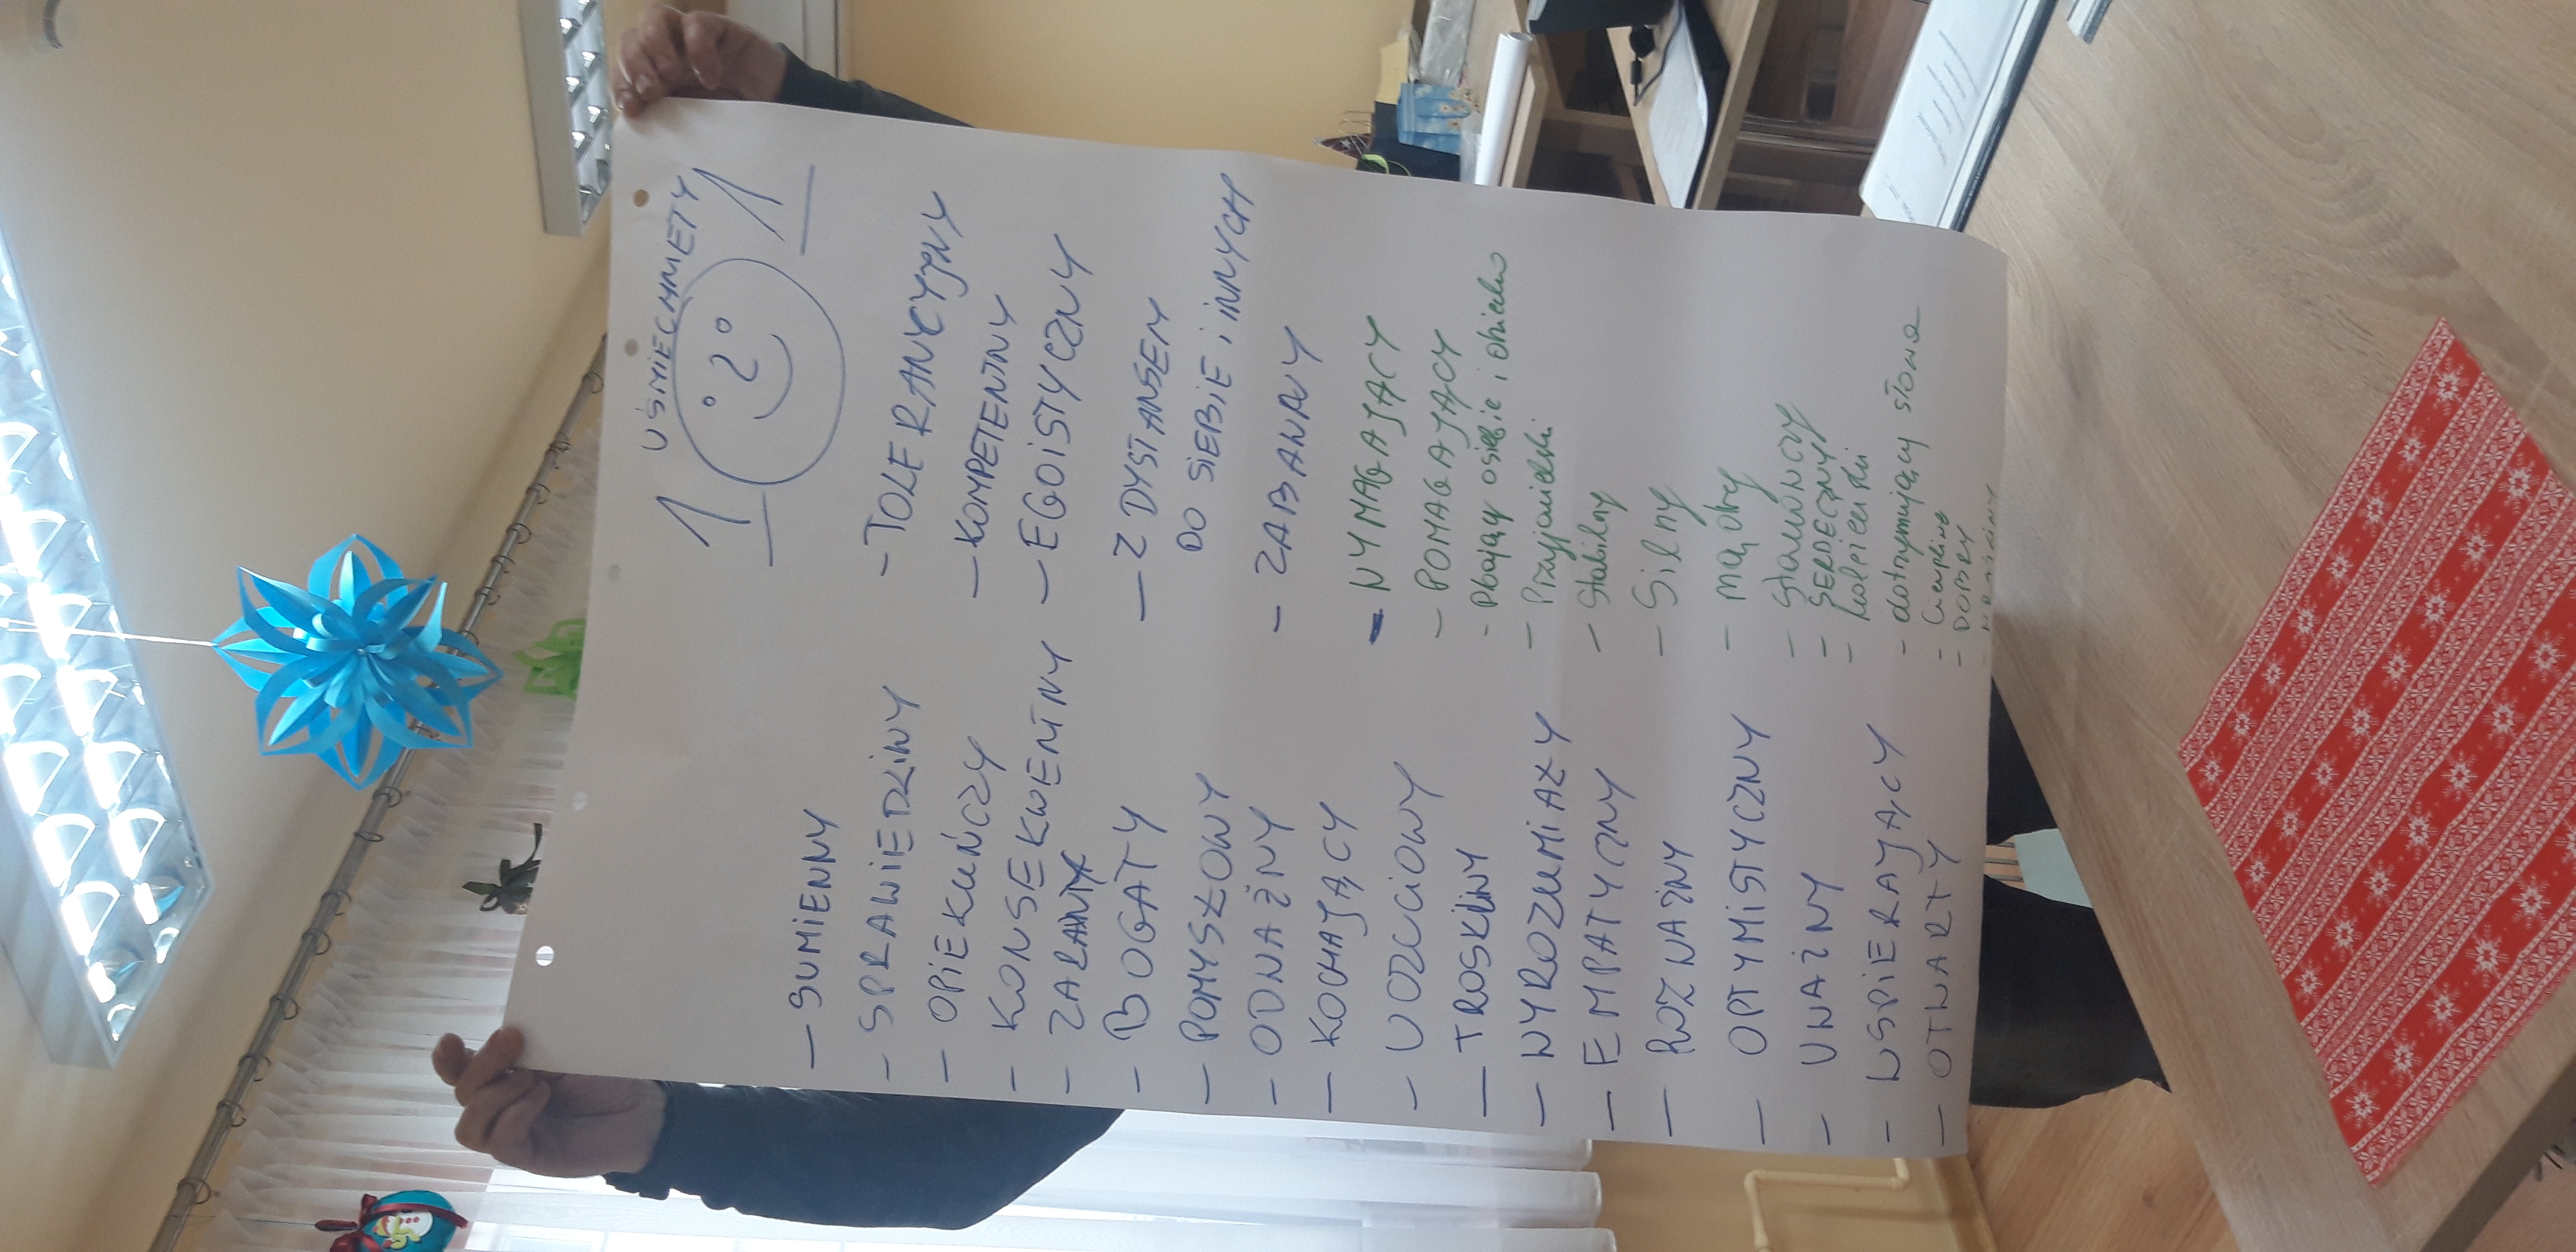 UŚMIECHNIĘTY
- SUMIENNY
- SPRAWIEDLIWY
- OPIEKUŃCZY
- KONSEKWENTNY
- ZARADNY
- BOGATY
- POMYSŁOWY
- ODWAŻNY
- KOCHAJĄCY
- UCZCIOWY
- TROSKLIWY
- WYROZUMIAŁY
- EMPATYCZNY
- ROZWAŻNY
- OPTYMISTYCZNY
- UWAŻNY
- WSPIERAJĄCY
- OTWARTY
- TOLERANCYJNY
- KOMPETENTNY
- EGOISTYCZNY
- Z DYSTANSEM
DO SIEBIE i INNYCH
- ZABAWNY
- WYMAGAJĄCY
- POMAGAJĄCY
- Dbający o siebie i dziecko
- Przyjacielski
- Stabilny
- Silny
- mądry
- stanowczy
- SERDECZNY
- dotrzymujący słowa
- Cierpliwy
- DOBRY